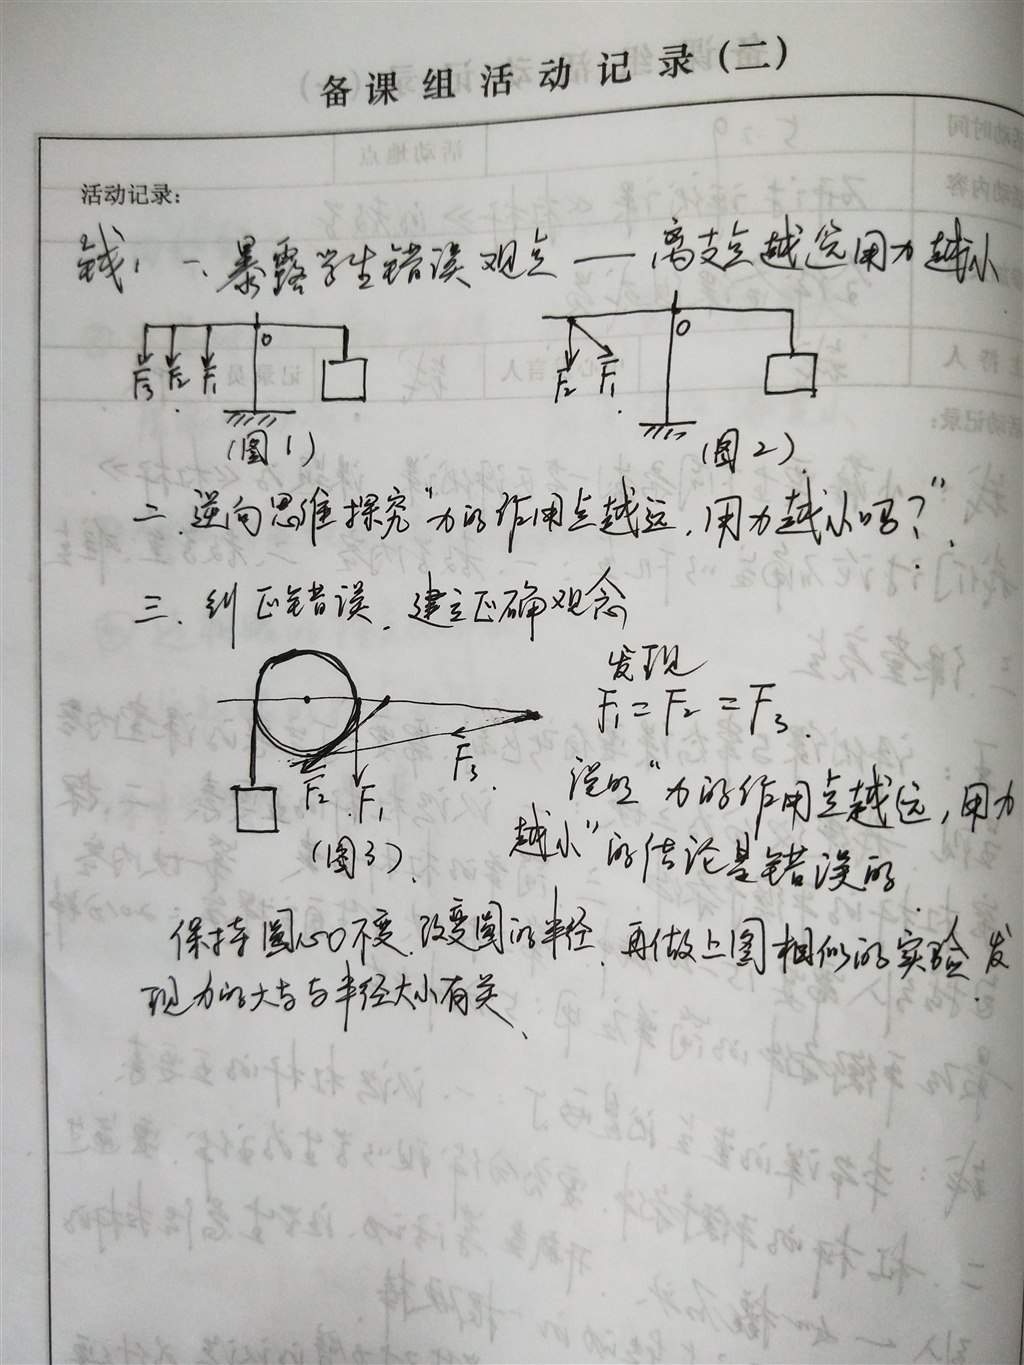 备课组活动记录(二)
活动记录:
钱: 一、暴露学生错误观点 — 离支点越远用力越小
O
F3 F2 F1
(图1)
O
F2 F1
(图2)
二、逆向思维探究"力的作用点越远,用力越小吗?"
三、纠正错误、建立正确观念
发现
F1 = F2 = F3.
F2 F1 F3
(图3)
说明"力的作用点越远,用力
越小"的结论是错误的
保持圆心O不变,改变圆的半径,再做上图相似的实验,发
现力的大与与半径大小有关、